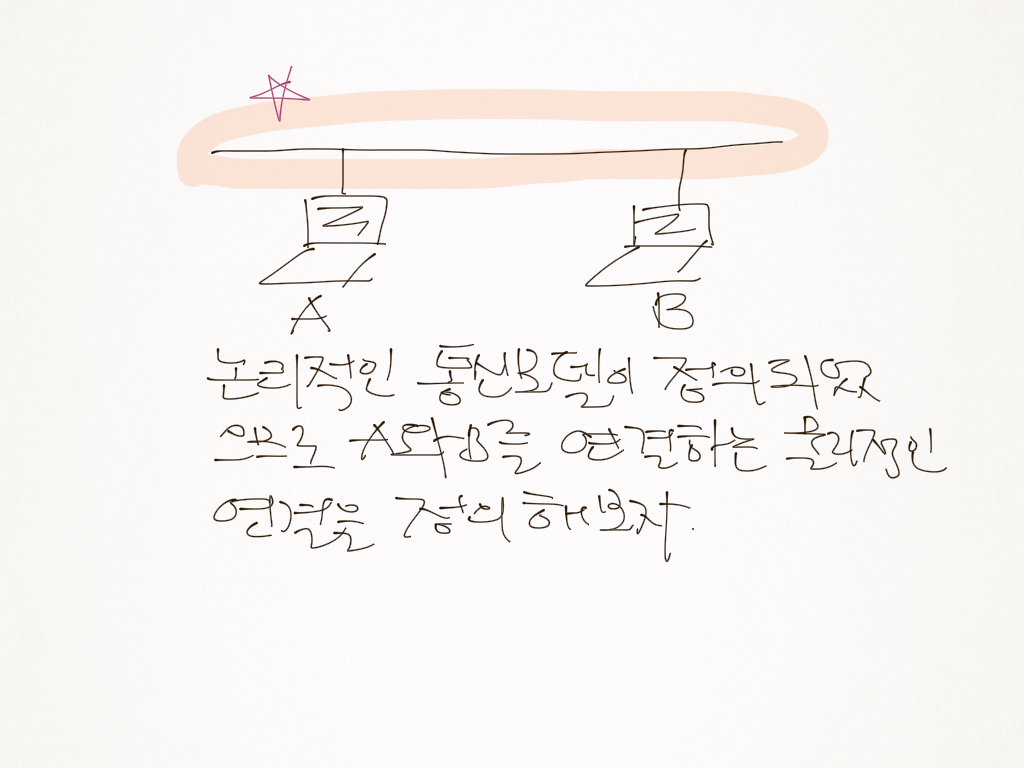 A
B
논리적인 통신모델이 정의되었
으므로 A와 B를 연결하는 물리적인
연결을 정의해보자.